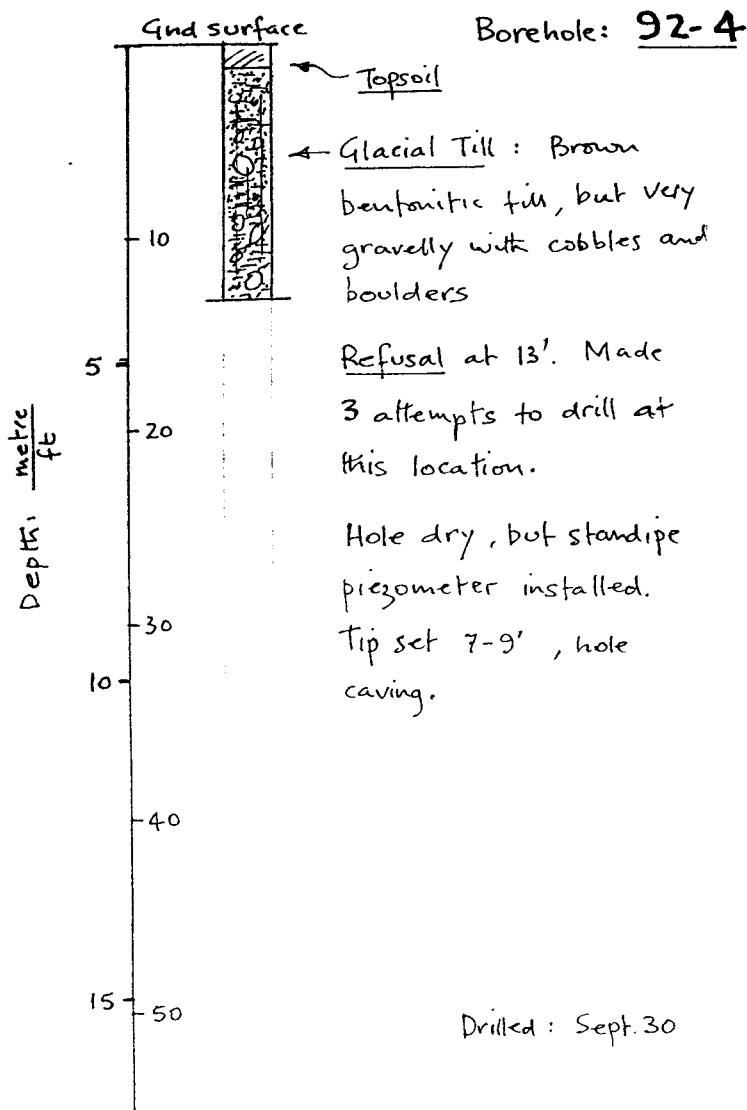 Gnd surface
Borehole: 92-4
Topsoil
Glacial Till: Brown
bentonitic till, but very
gravelly with cobbles and
boulders
10
Refusal at 13'. Made
3 attempts to drill at
this location.
5
20
Depth: metre
ft
Hole dry, but standipe
piezometer installed.
Tip set 7-9', hole
caving.
30
10
40
15
50
Drilled: Sept. 30